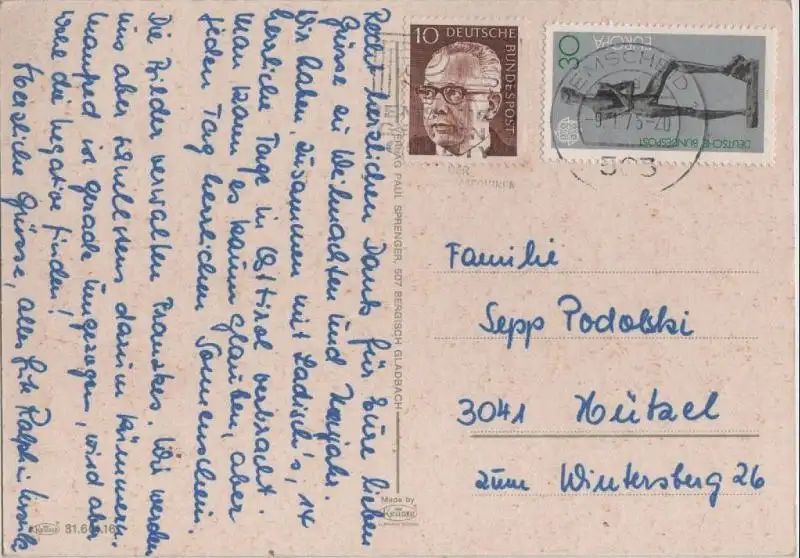 Recht herzlichen Dank für Eure lieben
Grüsse zu Weihnachten und Neujahr.
Wir haben zusammen mit Ladisch's, 14
herrliche Tage in Osttirol verbracht.
Man kann es kaum glauben, aber
jeden Tag herrlichen Sonnenschein.
Die Bilder verwalten Franzkes. Wir werden
uns aber schnellstens darum kümmern.
Manfred ist gerade umgezogen, wird aber
wohl die Negative finden!
Herzliche Grüsse, alles Gute Ralph u. Ursula
31.6
VERLAG PAUL SPRENGER, 507 BERGISCH GLADBACH
Made by
KRÜGER
10 DEUTSCHE BUNDESPOST
30 EUROPA
DEUTSCHE BUNDESPOST
REMSCHEID
-9.1.75-20
563
Familie
Sepp Podolski
3041 Hützel
zum Wintersberg 26